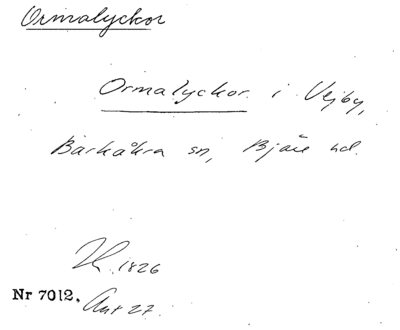 Ormalyckor
Ormalyckor i Vejby,
Barkåkra sn, Bjäre hd.
1826
Nr 7012. Ant 27.